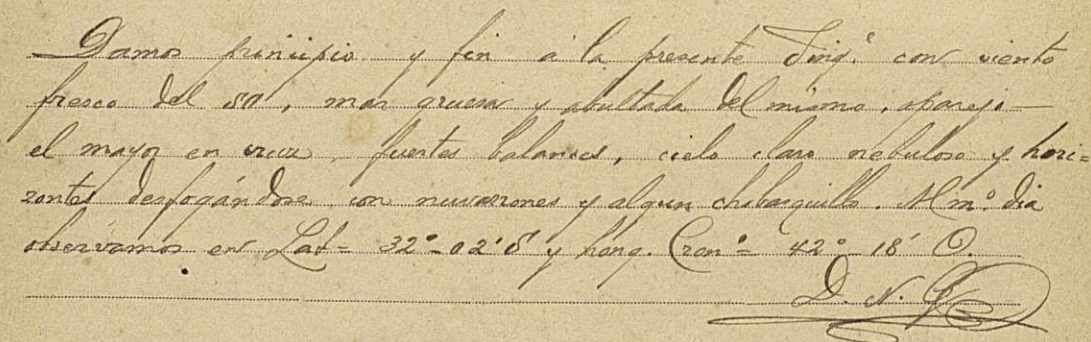 Damos principio y fin á la presente Sing.ª con viento
fresco del SO, mar gruesa y abultada del mismo, aparejo
el mayor en cruz, fuertes balances, cielo claro nebuloso y hori=
zontes desfogándose con nuvarrones y algun chubasquillo. Al m.º dia
observamos en Lat= 32°-02'S y Long. Cron.ª= 42°-18' O.
D. N.